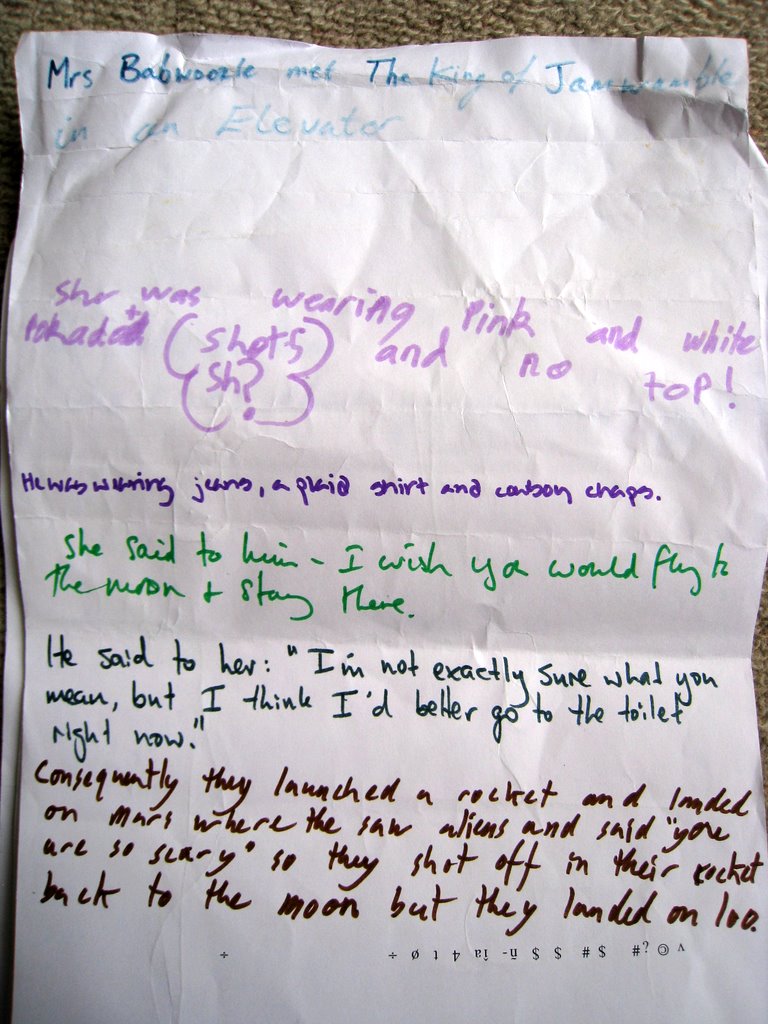 Mrs Babwoozle met The King of Jamwamble
in an Elevator
she was wearing Pink and white
(shots) and no top!
(sh?)
He was wearing jeans, a plaid shirt and cowboy chaps.
She said to him - I wish you would fly to
the moon + stay there.
He said to her: "I'm not exactly sure what you
mean, but I think I'd better go to the toilet
right now."
Consequently they launched a rocket and landed
on mars where the saw aliens and said "you
are so scary" so they shot off in their rocket
back to the moon but they landed on loo.